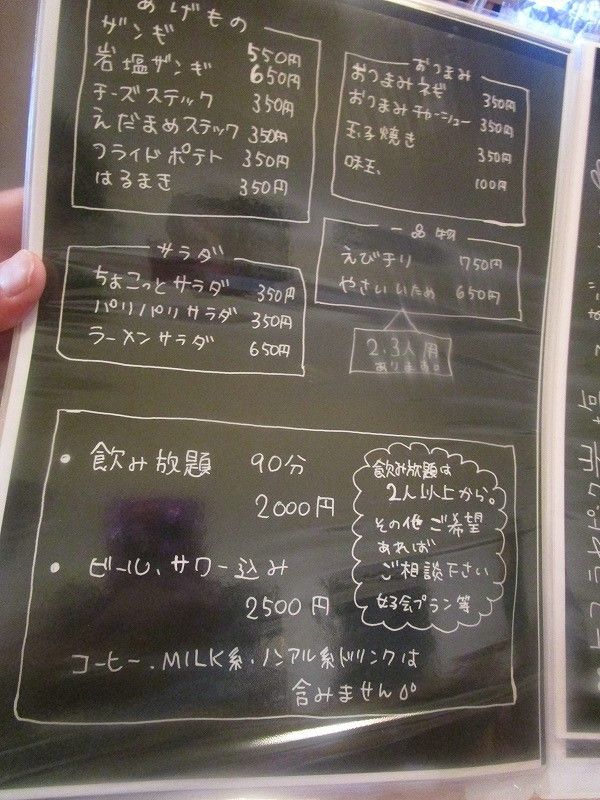 あげもの
ザンギ 550円
岩塩ザンギ 650円
チーズスティック 350円
えだまめスティック 350円
フライドポテト 350円
はるまき 350円
おつまみ
おつまみネギ 350円
おつまみチャーシュー 350円
玉子焼き 350円
味玉、 100円
サラダ
ちょこっとサラダ 350円
パリパリサラダ 350円
ラーメンサラダ 650円
一品物
えびチリ 750円
やさいいため 650円
2.3人用
あります。
• 飲み放題 90分
2000円
• ビール、サワー込み
2500円
飲み放題は
2人以上から。
その他ご希望
あれば
ご相談下さい
女子会プラン等
コーヒー.MILK系.ノンアル系ドリンクは
含みません。